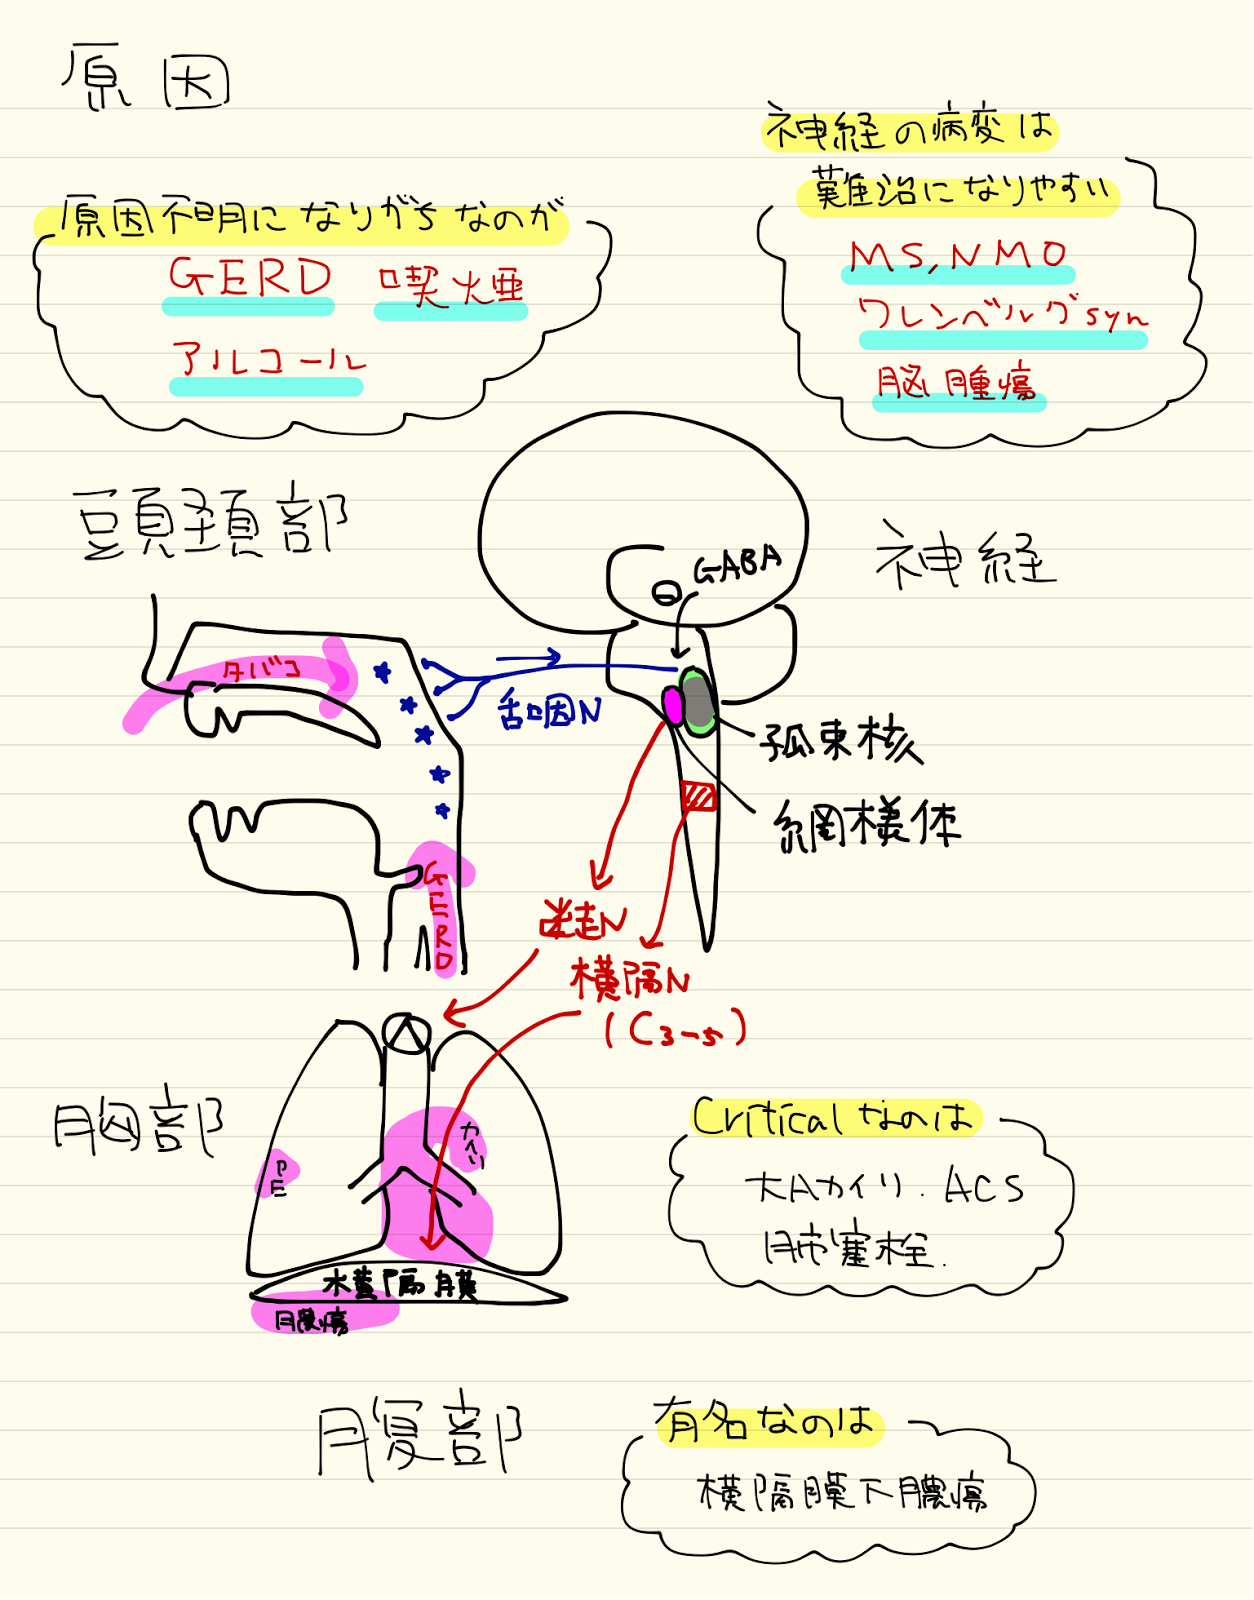 原因
神経の病変は
難治になりやすい
MS, NMO
ワレンベルグsyn
脳腫瘍
原因不明になりがちなのが
GERD 喫煙
アルコール
頭頚部
神経
GABA
タバコ
舌咽N
孤束核
網様体
GERD
迷走N
横隔N
(C3-5)
胸部
カイリ
PE
横隔膜
膿瘍
Criticalなのは
大Aカイリ. ACS
肺塞栓.
腹部
有名なのは
横隔膜下膿瘍